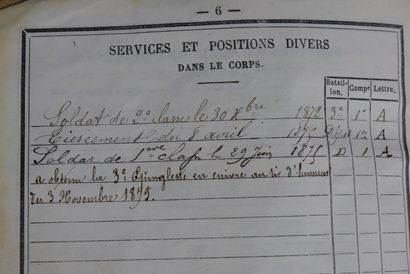 — 6 —
SERVICES ET POSITIONS DIVERS
DANS LE CORPS.
Bataillon, Compe Lettre,
Soldat de 2e classe le 30 Xbre 1872 3e 1e A
Tiercement du 8 avril 1875 1e A
Soldat de 1ere classe le 29 Juin 1875 D 1 A
a obtenu la 3e Epinglette en cuivre au tir d'honneur
du 3 Novembre 1875.